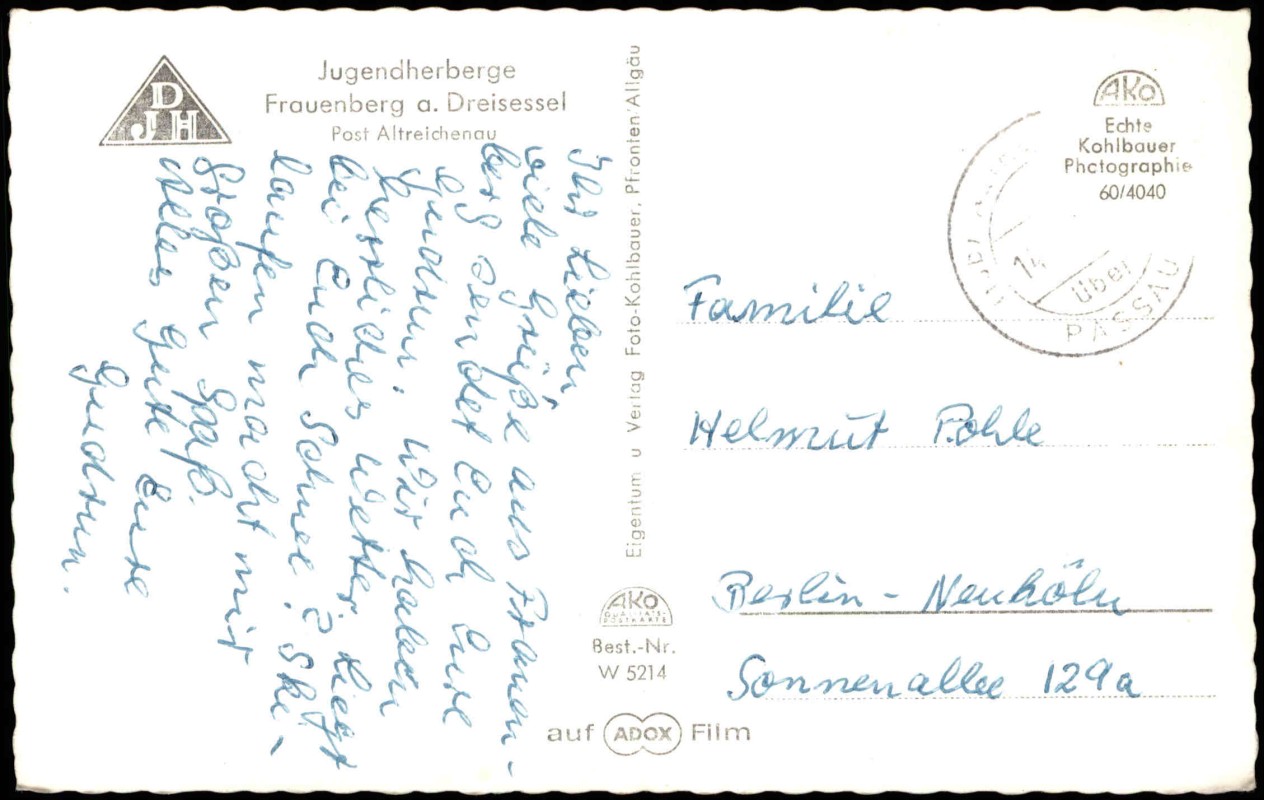 DJH
Jugendherberge
Frauenberg a. Dreisessel
Post Altreichenau
Ihr Lieben,
viele Grüße aus Frauen-
berg sendet Euch Eure
Gudrun. Wir haben
herrliches Wetter. Liegt
bei Euch Schnee? Ski-
laufen macht mir
großen Spaß.
Alles gute Eure
Gudrun.
Eigentum u Verlag Foto-Kohlbauer, Pfronten/Allgäu
AKO
QUALITÄTS-
POSTKARTE
Best.-Nr.
W 5214
auf ADOX Film
AKO
Echte
Kohlbauer
Photographie
60/4040
14
über
PASSAU
Familie
Helmut Pohle
Berlin - Neuköln
Sonnenallee 129a